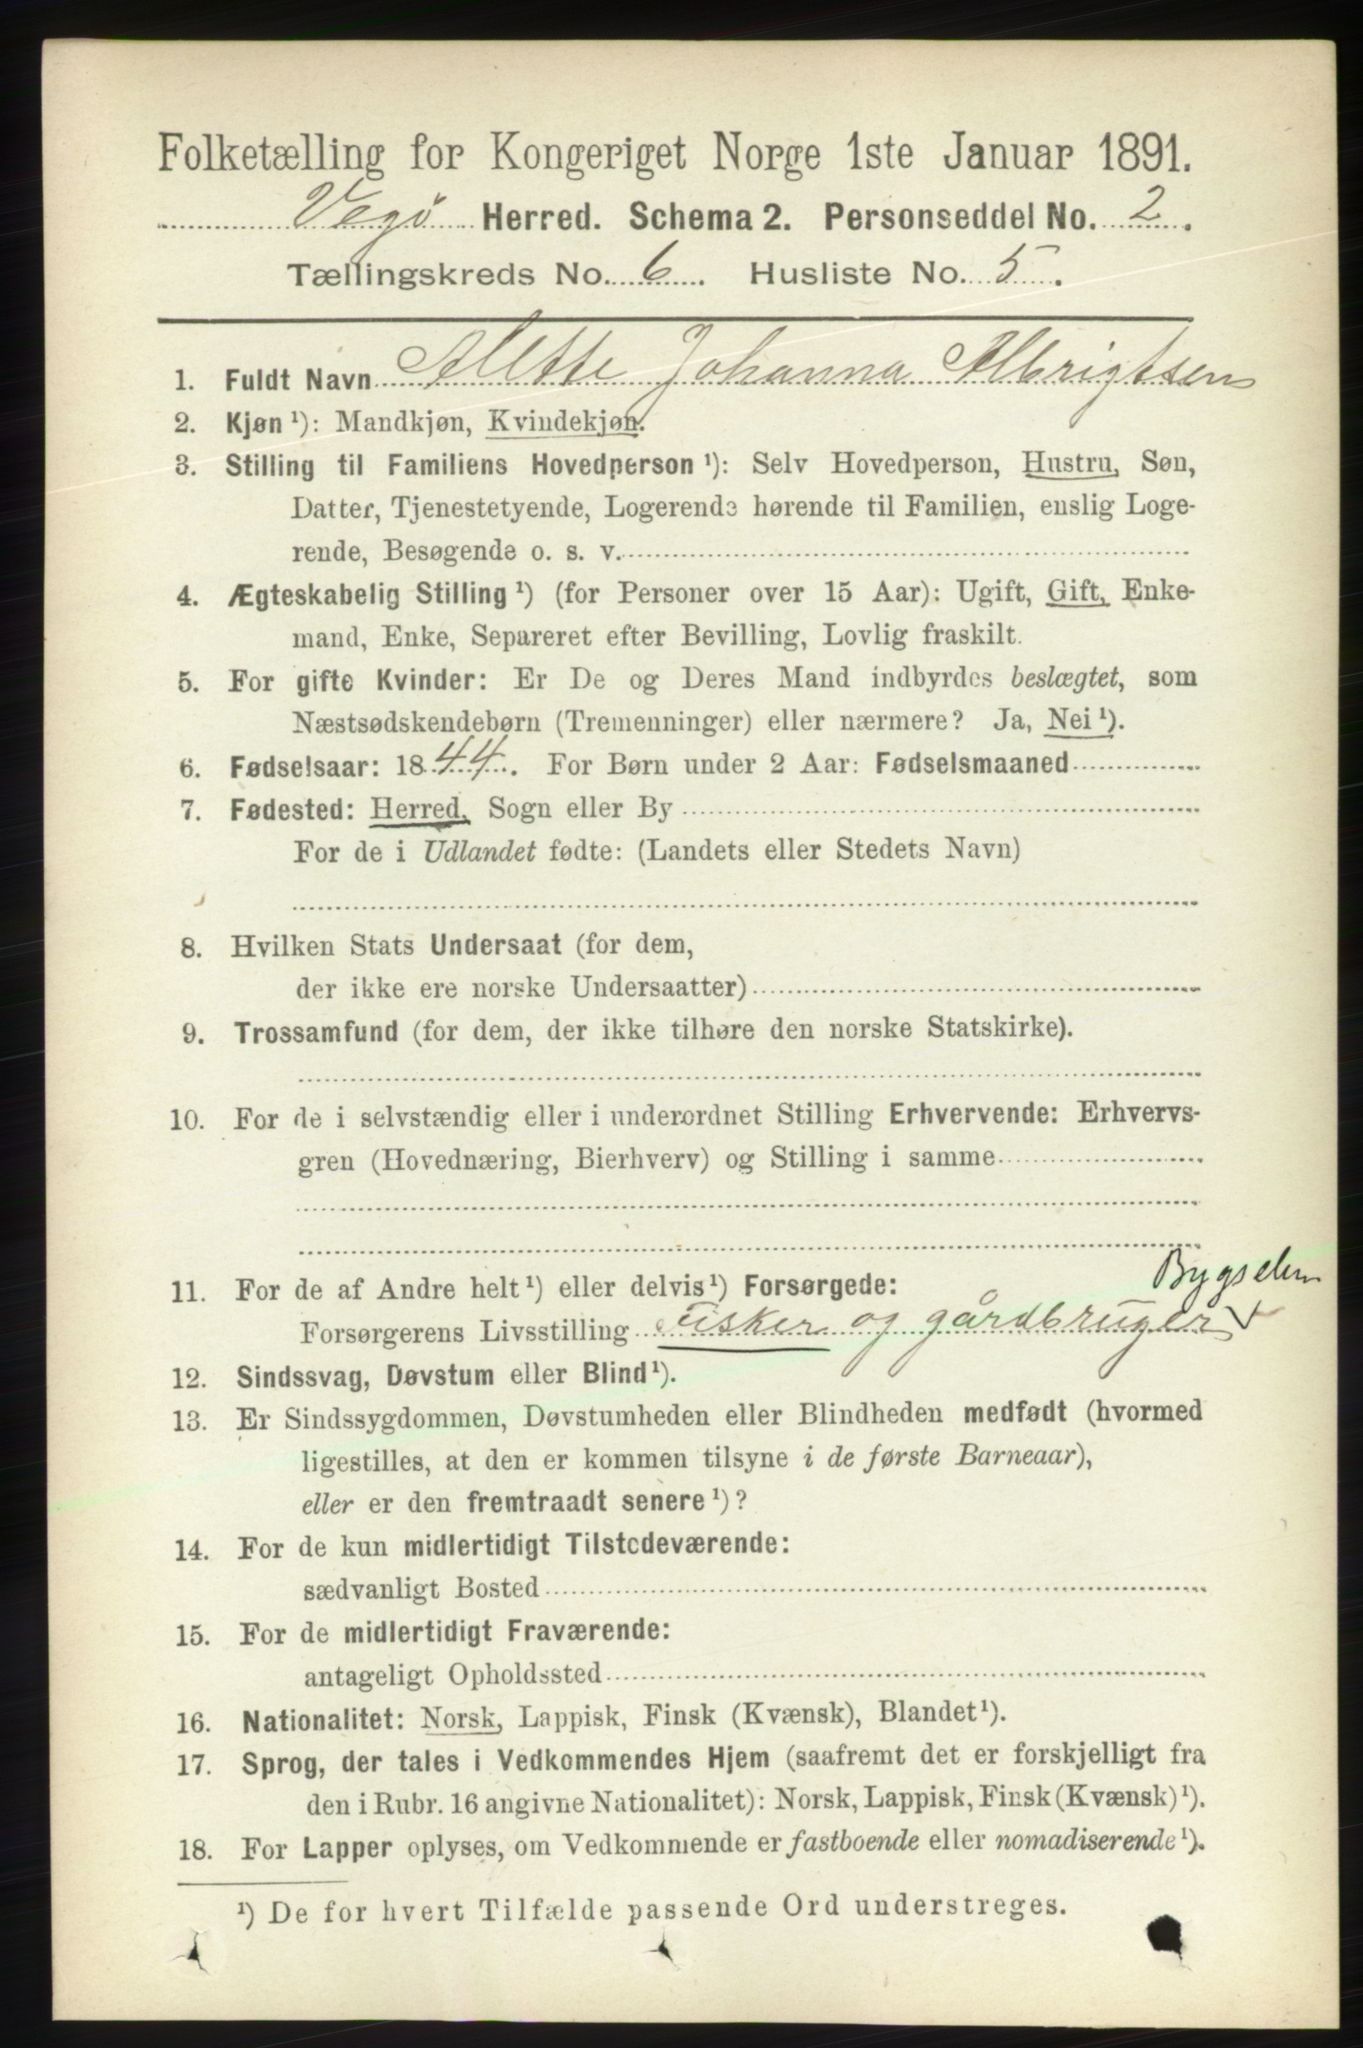 Folketælling for Kongeriget Norge 1ste Januar 1891.
Vegø Herred. Schema 2. Personseddel No. 2.
Tællingskreds No. 6. Husliste No. 5.
1. Fuldt Navn Alette Johanna Albrigtsen
2. Kjøn ¹): Mandkjøn, Kvindekjøn.
3. Stilling til Familiens Hovedperson ¹): Selv Hovedperson, Hustru, Søn,
Datter, Tjenestetyende, Logerende hørende til Familien, enslig Loge-
rende, Besøgende o. s. v.
4. Ægteskabelig Stilling ¹) (for Personer over 15 Aar): Ugift, Gift, Enke-
mand, Enke, Separeret efter Bevilling, Lovlig fraskilt.
5. For gifte Kvinder: Er De og Deres Mand indbyrdes beslægtet, som
Næstsødskendebørn (Tremenninger) eller nærmere? Ja, Nei ¹).
6. Fødselsaar: 1844. For Børn under 2 Aar: Fødselsmaaned
7. Fødested: Herred, Sogn eller By
For de i Udlandet fødte: (Landets eller Stedets Navn)
8. Hvilken Stats Undersaat (for dem,
der ikke ere norske Undersaatter)
9. Trossamfund (for dem, der ikke tilhøre den norske Statskirke).
10. For de i selvstændig eller i underordnet Stilling Erhvervende: Erhvervs-
gren (Hovednæring, Bierhverv) og Stilling i samme
Bygselm
11. For de af Andre helt ¹) eller delvis ¹) Forsørgede:
Forsørgerens Livsstilling Fisker og gårdbruger
12. Sindssvag, Døvstum eller Blind ¹).
13. Er Sindssygdommen, Døvstumheden eller Blindheden medfødt (hvormed
ligestilles, at den er kommen tilsyne i de første Barneaar),
eller er den fremtraadt senere ¹)?
14. For de kun midlertidigt Tilstedeværende:
sædvanligt Bosted
15. For de midlertidigt Fraværende:
antageligt Opholdssted
16. Nationalitet: Norsk, Lappisk, Finsk (Kvænsk), Blandet ¹).
17. Sprog, der tales i Vedkommendes Hjem (saafremt det er forskjelligt fra
den i Rubr. 16 angivne Nationalitet): Norsk, Lappisk, Finsk (Kvænsk) ¹).
18. For Lapper oplyses, om Vedkommende er fastboende eller nomadiserende ¹).
¹) De for hvert Tilfælde passende Ord understreges.